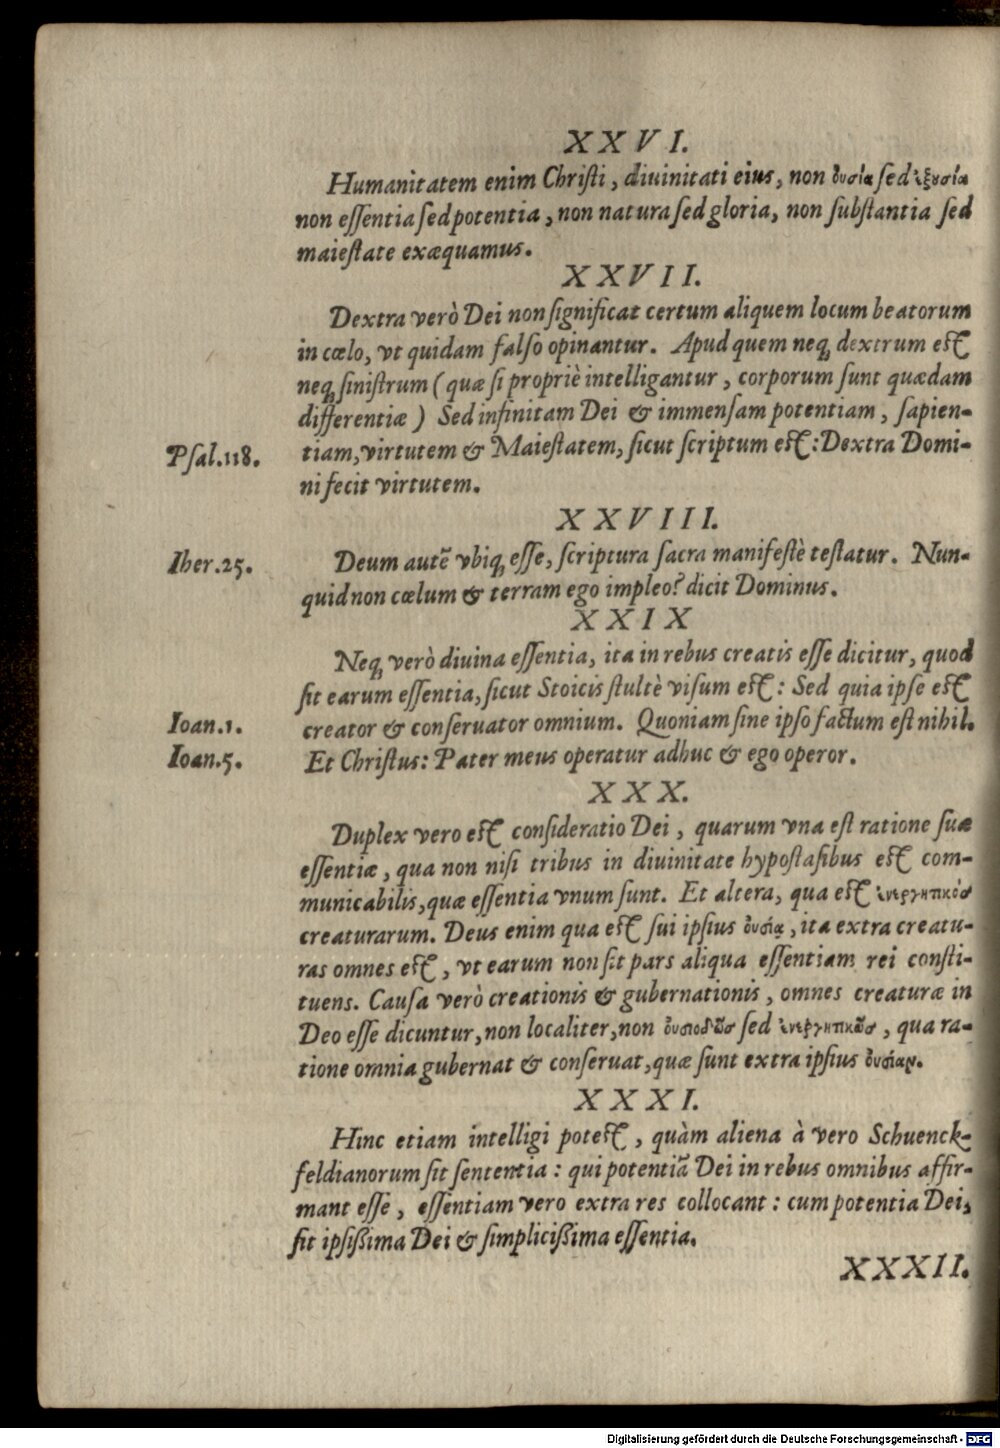 XXVI.
Humanitatem enim Chriſti, diuinitati eius, non οὐσίᾳ ſed ἐξουσίᾳ
non eſſentia ſed potentia, non natura ſed gloria, non ſubſtantia ſed
maieſtate exæquamus.
XXVII.
Dextra verò Dei non ſignificat certum aliquem locum beatorum
in cœlo, vt quidam falſo opinantur. Apud quem neq; dextrum eſt
neq; ſiniſtrum (quæ ſi propriè intelligantur, corporum ſunt quædam
differentiæ) Sed infinitam Dei & immenſam potentiam, ſapien-
Pſal.118. tiam, virtutem & Maieſtatem, ſicut ſcriptum eſt: Dextra Domi-
ni fecit virtutem.
XXVIII.
Iher.25. Deum autē vbiq; eſſe, ſcriptura ſacra manifeſtè teſtatur. Nun-
quid non cœlum & terram ego impleo? dicit Dominus.
XXIX
Neq; verò diuina eſſentia, ita in rebus creatis eſſe dicitur, quod
ſit earum eſſentia, ſicut Stoicis ſtultè viſum eſt: Sed quia ipſe eſt
Ioan.1. creator & conſeruator omnium. Quoniam ſine ipſo factum eſt nihil.
Ioan.5. Et Chriſtus: Pater meus operatur adhuc & ego operor.
XXX.
Duplex vero eſt conſideratio Dei, quarum vna eſt ratione ſuæ
eſſentiæ, qua non niſi tribus in diuinitate hypoſtaſibus eſt com-
municabilis, quæ eſſentia vnum ſunt. Et altera, qua eſt ἐνεργητικὸσ
creaturarum. Deus enim qua eſt ſui ipſius οὐσία, ita extra creatu-
ras omnes eſt, vt earum non ſit pars aliqua eſſentiam rei conſti-
tuens. Cauſa verò creationis & gubernationis, omnes creaturæ in
Deo eſſe dicuntur, non localiter, non οὐσιοδῶσ ſed ἐνεργητικῶσ, qua ra-
tione omnia gubernat & conſeruat, quæ ſunt extra ipſius οὐσίαν.
XXXI.
Hinc etiam intelligi poteſt, quàm aliena à vero Schuenck-
feldianorum ſit ſententia: qui potentiā Dei in rebus omnibus affir-
mant eſſe, eſſentiam vero extra res collocant: cum potentia Dei,
ſit ipſiſſima Dei & ſimpliciſſima eſſentia.
XXXII.
Digitalisierung gefördert durch die Deutsche Forschungsgemeinschaft - DFG